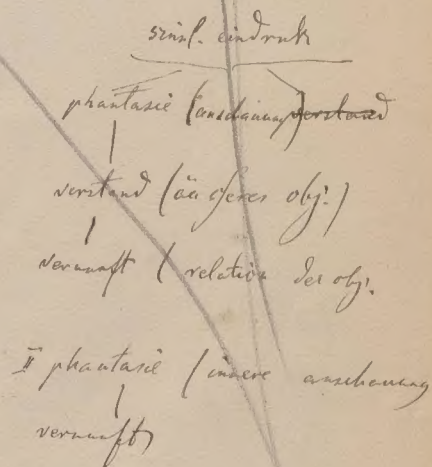 sinnl. eindruk
phantasie (anschauung) verstand
verstand (äußeres obj.)
vernunft (relation der obj.
II phantasie (innere anschauung
vernunft